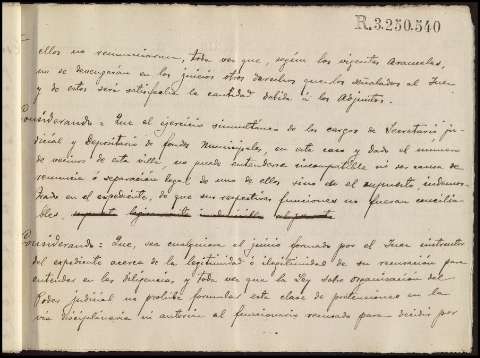 R.3.250.540
ellos no renunciaron, toda vez que, según los vigentes Aranceles,
no se devengarán en los juicios otros derechos que los señalados al Juez
y de estos será satisfecha la cantidad debida á los Adjuntos.
Considerando: Que el ejercicio simultáneo de los cargos de Secretario ju-
dicial y Depositario de fondos Municipales, en este caso y dado el número
de vecinos de esta villa no puede entenderse incompatible ni ser causa de
renuncia ó separación legal de uno de ellos sino en el supuesto, indemos-
trado en el expediente, de que sus respectivas funciones no fueran concilia-
bles,
Considerando: Que, sea cualquiera el juicio formado por el Juez instructor
del expediente acerca de la legitimidad ó ilegitimidad de su recusación para
entender en las diligencias, y toda vez que la Ley sobre organización del
Poder judicial no prohibe formular esta clase de pretensiones en la
vía disciplinaria ni autoriza al funcionario recusado para decidir por